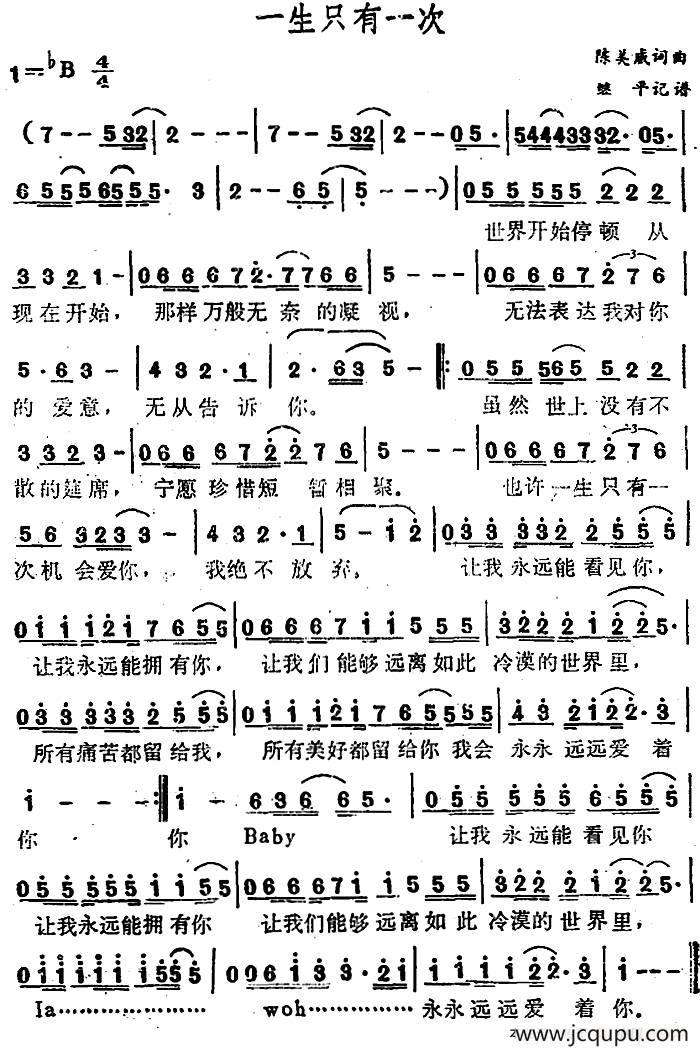 一生只有一次
1=♭B 4/4
陈美威词曲
继 平记谱
(7 - - 532 | 2 - - - | 7 - - 532 | 2 - - 05· | 544433332· 05·
6 5555 6555· 3 | 2 - - 6 5 | 5 - - - ) | 055 555 222 |
世界开始停顿 从
3321 - | 066 667 2·77 66 | 5 - - - | 066 667 276 |
现在开始, 那样万般无奈的凝视, 无法表达我对你
5·63 - | 432·1 | 2·63 5 - ‖: 055 565 522 |
的爱意, 无从告诉你。 虽然世上没有不
3323 - | 066 667 2 2 | 5 - - - | 066 667 276 |
散的筵席, 宁愿珍惜短 暂相聚。 也许一生只有一
56 323 3 - | 432·1 | 5 - 1 2 | 033 332 2555 |
次机会爱你, 我绝不放弃。 让我永远能看见你,
011 121 7655 | 066 667 11 555 | 3222 2 1225· |
让我永远能拥有你, 让我们能够远离如此 冷漠的世界里,
033 333 2555 | 011 121 765555 | 43 2122·3 |
所有痛苦都留给我, 所有美好都留给你我会 永永远远爱着
1 - - - :‖ 1 - 636 65· | 055 555 6555 |
你 你 Baby 让我永远能看见你
055 555 1 155 | 066 671 11 555 | 3222 2 1225· |
让我永远能拥有你 让我们能够远离如此 冷漠的世界里,
011 11 11 1555 | 0061 3 3·21 | 11 1122·3 | 1 - - - ‖
Ia………………… woh……………… 永永远远爱着你。
www.jcqupu.com